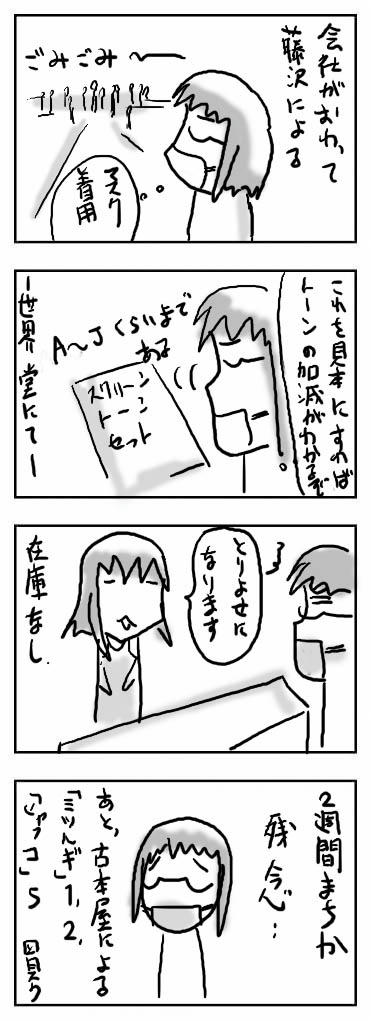 会社がおわって
藤沢による
ごみごみ〜
マスク
着用
これを見本にすれば
トーンの加減がわかるぞ
A〜Jくらいまで
ある
スクリーン
トーン
セット
ー世界堂にてー
とりよせに
なります
在庫なし
2週間まちか
残念…
あと、古本屋による
「ミツルギ」1、2、
5 買う